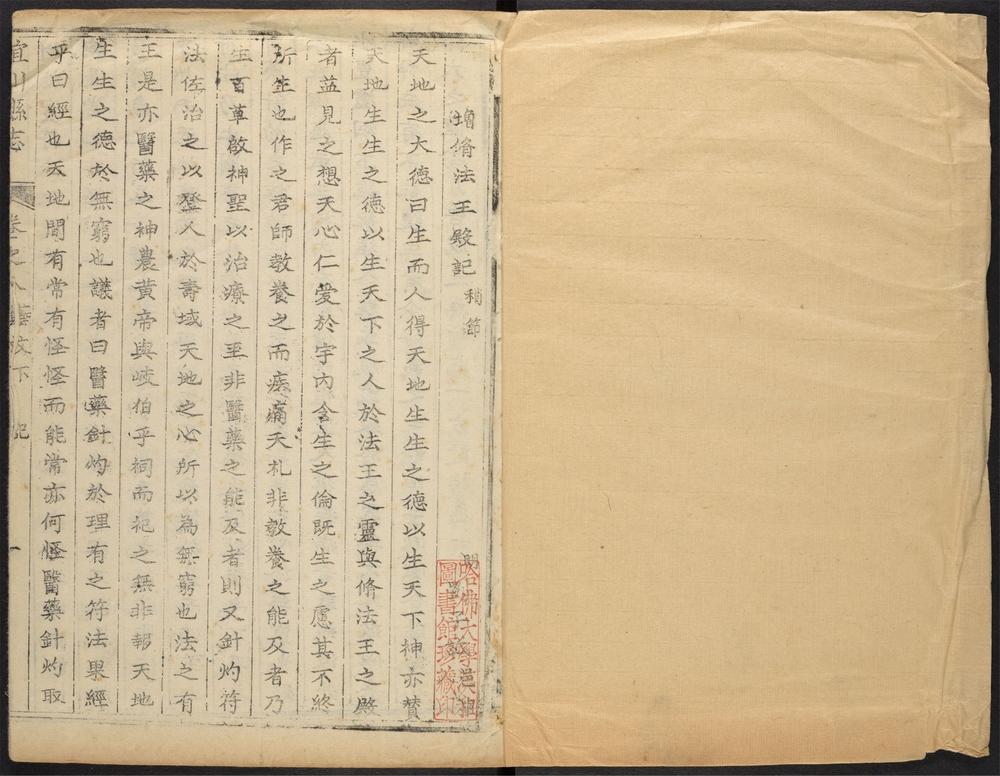 增脩法王殿記 稍節
天地之大德曰生而人得天地生生之德以生天下神亦贊
天地生生之德以生天下之人於法王之靈與脩法王之殿
者益見之想天心仁愛於宇內含生之倫既生之慮其不終
所生也作之君師教養之而疾痛夭札非教養之能及者乃
生百草啟神聖以治療之至非醫藥之能及者則又針灼符
法佐治之以登人於壽域天地之心所以為無窮也法之有
王是亦醫藥之神農黃帝與岐伯乎祠而祀之無非報天地
生生之德於無窮也議者曰醫藥針灼於理有之符法果經
乎曰經也天地間有常有怪怪而能常亦何怪醫藥針灼取
宜川縣志 卷之八 藝文下 記 一
哈佛大學
圖書館珍藏印